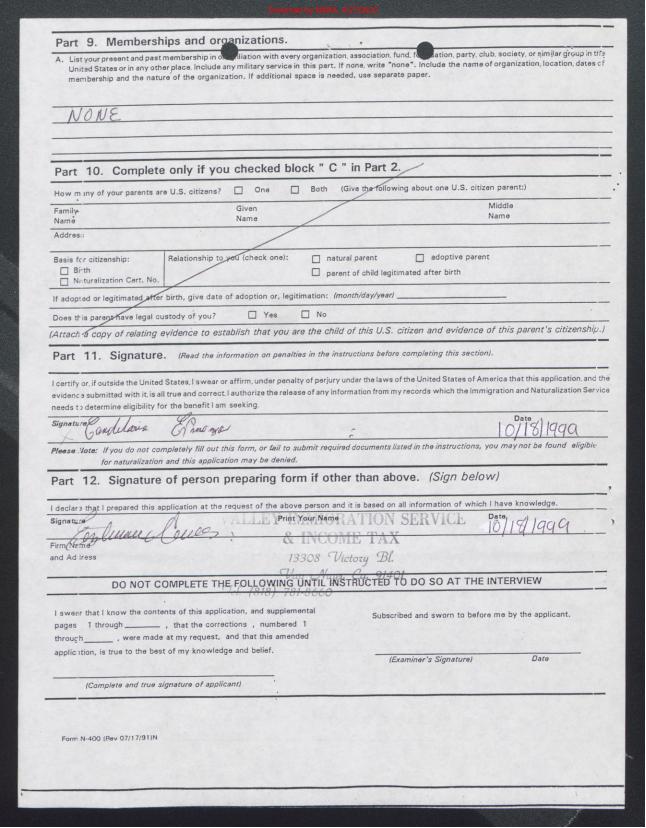 Part 9. Memberships and organizations.
A. List your present and past membership in or affiliation with every organization, association, fund, foundation, party, club, society, or similar group in the
United States or in any other place. Include any military service in this part. If none, write "none". Include the name of organization, location, dates of
membership and the nature of the organization. If additional space is needed, use separate paper.
NONE
Part 10. Complete only if you checked block " C " in Part 2.
How many of your parents are U.S. citizens? One Both (Give the following about one U.S. citizen parent:)
Family Given Middle
Name Name Name
Address:
Basis for citizenship: Relationship to you (check one): natural parent adoptive parent
Birth
Naturalization Cert. No. parent of child legitimated after birth
If adopted or legitimated after birth, give date of adoption or, legitimation: (month/day/year)
Does this parent have legal custody of you? Yes No
(Attach a copy of relating evidence to establish that you are the child of this U.S. citizen and evidence of this parent's citizenship.)
Part 11. Signature. (Read the information on penalties in the instructions before completing this section).
I certify or, if outside the United States, I swear or affirm, under penalty of perjury under the laws of the United States of America that this application, and the
evidence submitted with it, is all true and correct. I authorize the release of any information from my records which the Immigration and Naturalization Service
needs to determine eligibility for the benefit I am seeking.
Signature Date
10/18/1999
Please Note: If you do not completely fill out this form, or fail to submit required documents listed in the instructions, you may not be found eligible
for naturalization and this application may be denied.
Part 12. Signature of person preparing form if other than above. (Sign below)
I declare that I prepared this application at the request of the above person and it is based on all information of which I have knowledge.
Signature VALLEY IMMIGRATION SERVICE Print Your Name Date
10/18/1999
Firm Name & INCOME TAX
and Address 13308 Victory Bl.
Van Nuys, Ca. 91401
(818) 781-8660
DO NOT COMPLETE THE FOLLOWING UNTIL INSTRUCTED TO DO SO AT THE INTERVIEW
I swear that I know the contents of this application, and supplemental
pages 1 through , that the corrections , numbered 1
through , were made at my request, and that this amended
application, is true to the best of my knowledge and belief.
(Complete and true signature of applicant)
Subscribed and sworn to before me by the applicant.
(Examiner's Signature) Date
Form N-400 (Rev 07/17/91)N